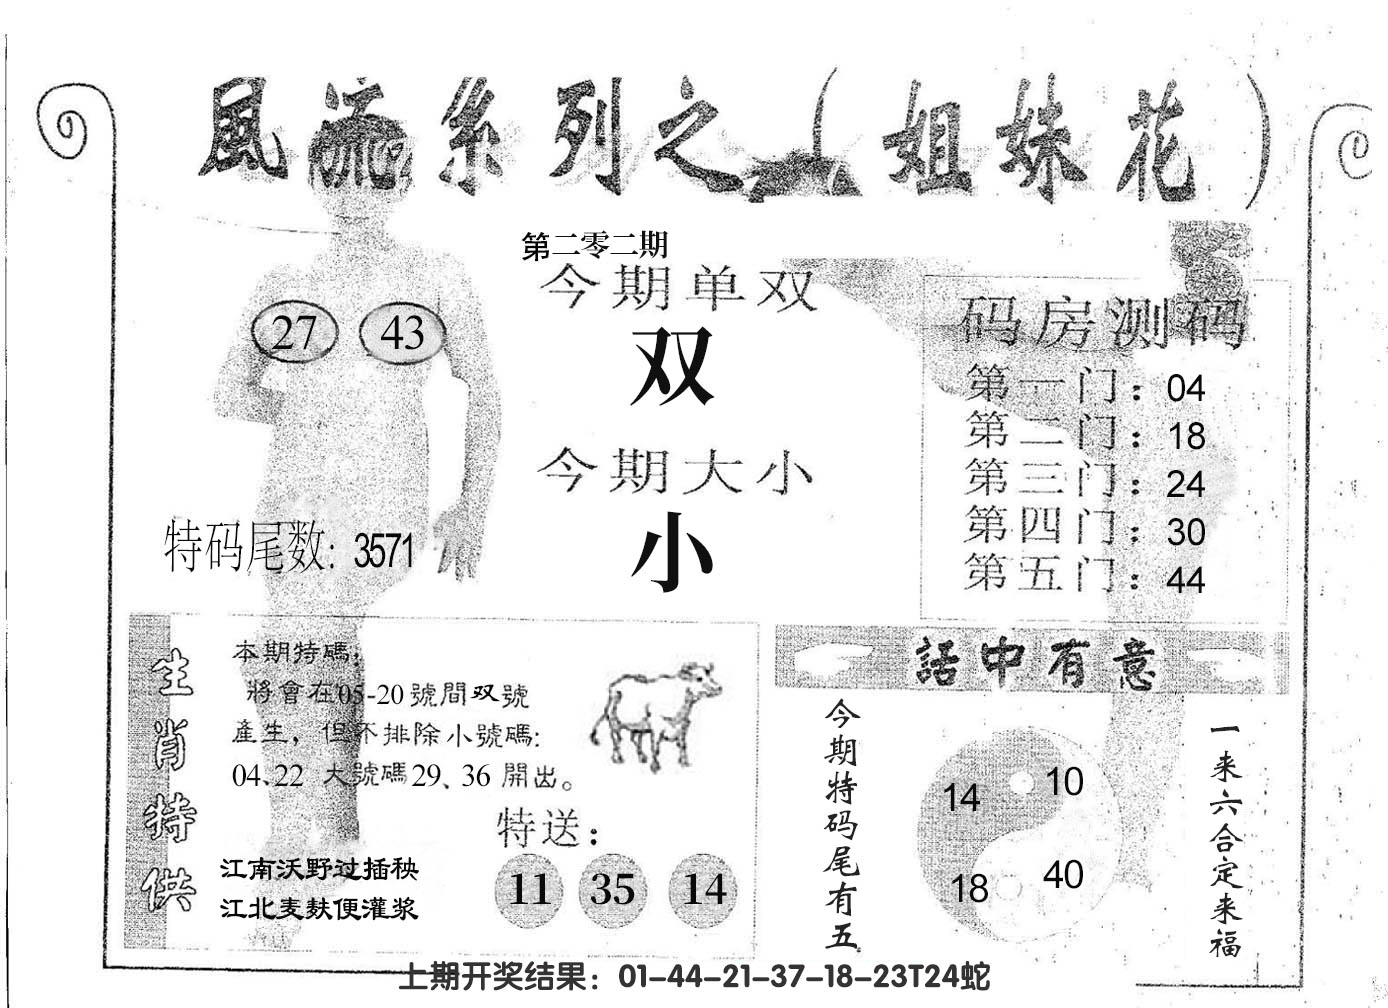 風流系列之（姐妹花）
第二零二期
今期单双
双
今期大小
小
27 43
特码尾数: 3571
码房测码
第一门：04
第二门：18
第三门：24
第四门：30
第五门：44
生肖特供
本期特碼，
將會在05-20號間双號
產生，但不排除小號碼:
04、22 大號碼29、36開出。
特送：
11 35 14
江南沃野过插秧
江北麦麸便灌浆
話中有意
今期特码尾有五
14 10
18 40
一来六合定来福
上期开奖结果：01-44-21-37-18-23T24蛇